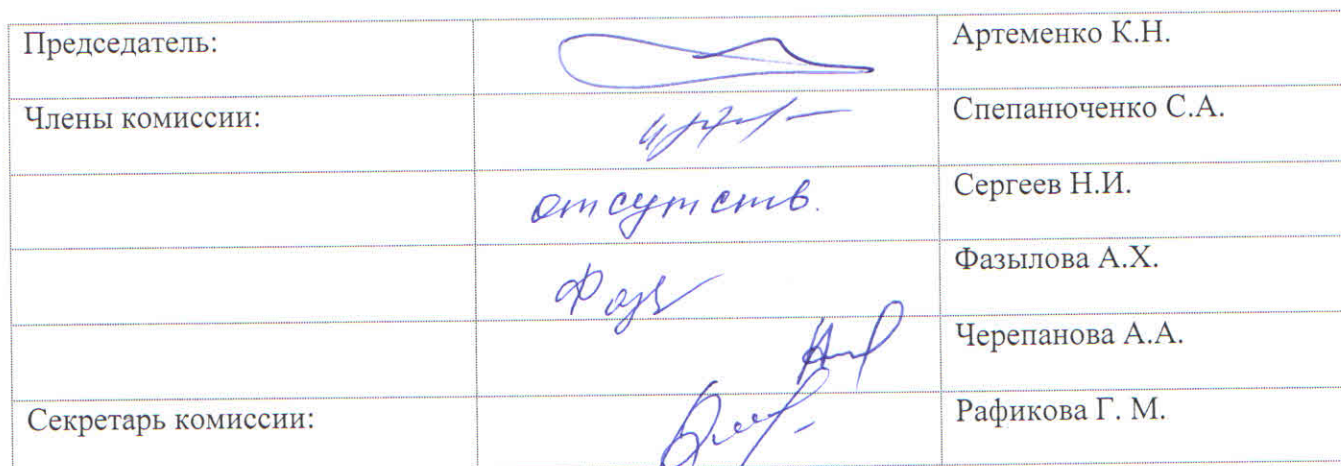 Председатель: Артеменко К.Н.
Члены комиссии: Спепанюченко С.А.
отсутств. Сергеев Н.И.
Фазылова А.Х.
Черепанова А.А.
Секретарь комиссии: Рафикова Г. М.